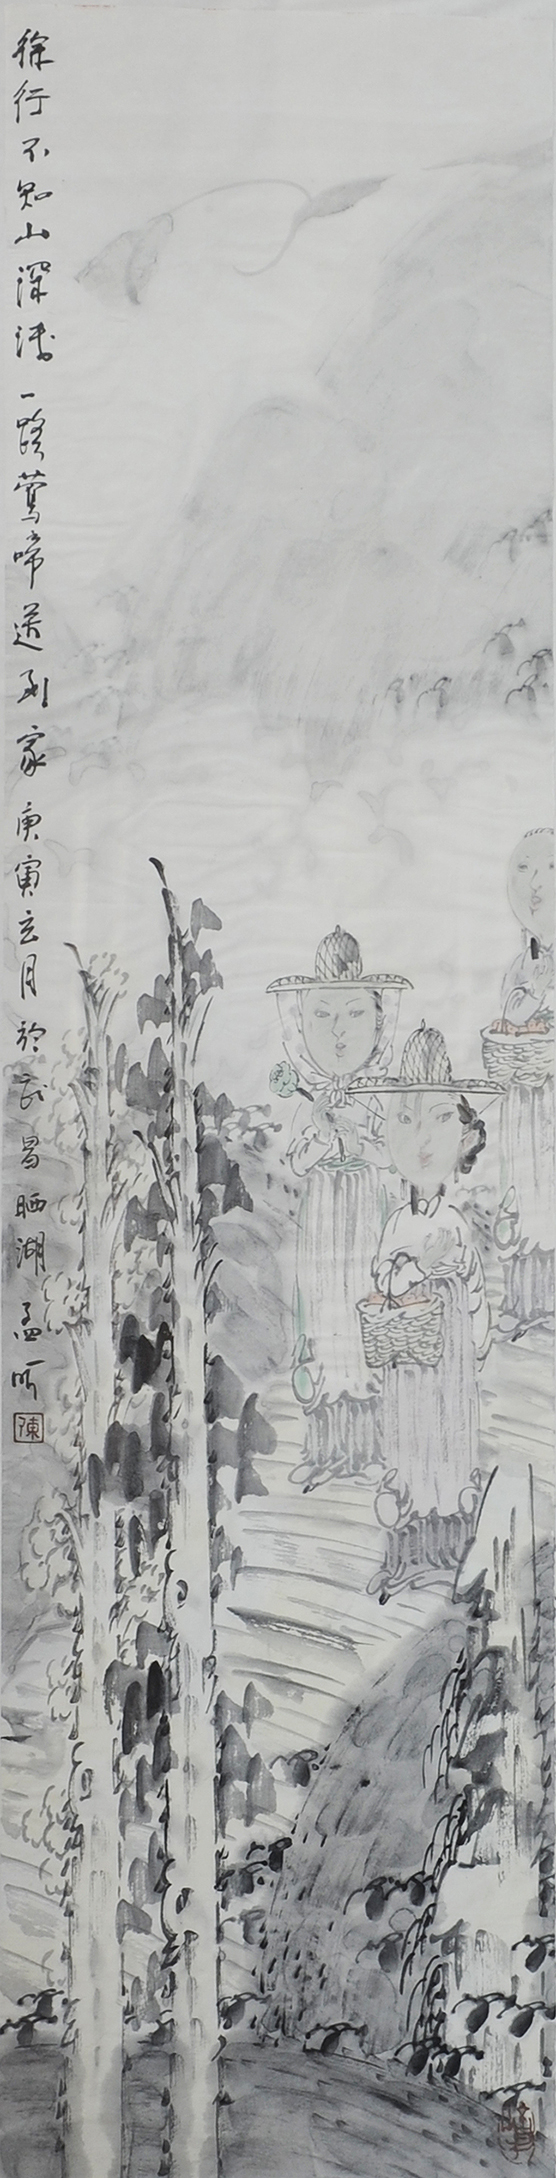 徐行不知山深浅一路莺啼送到家庚寅玄月於武昌晒湖孟昕
陳